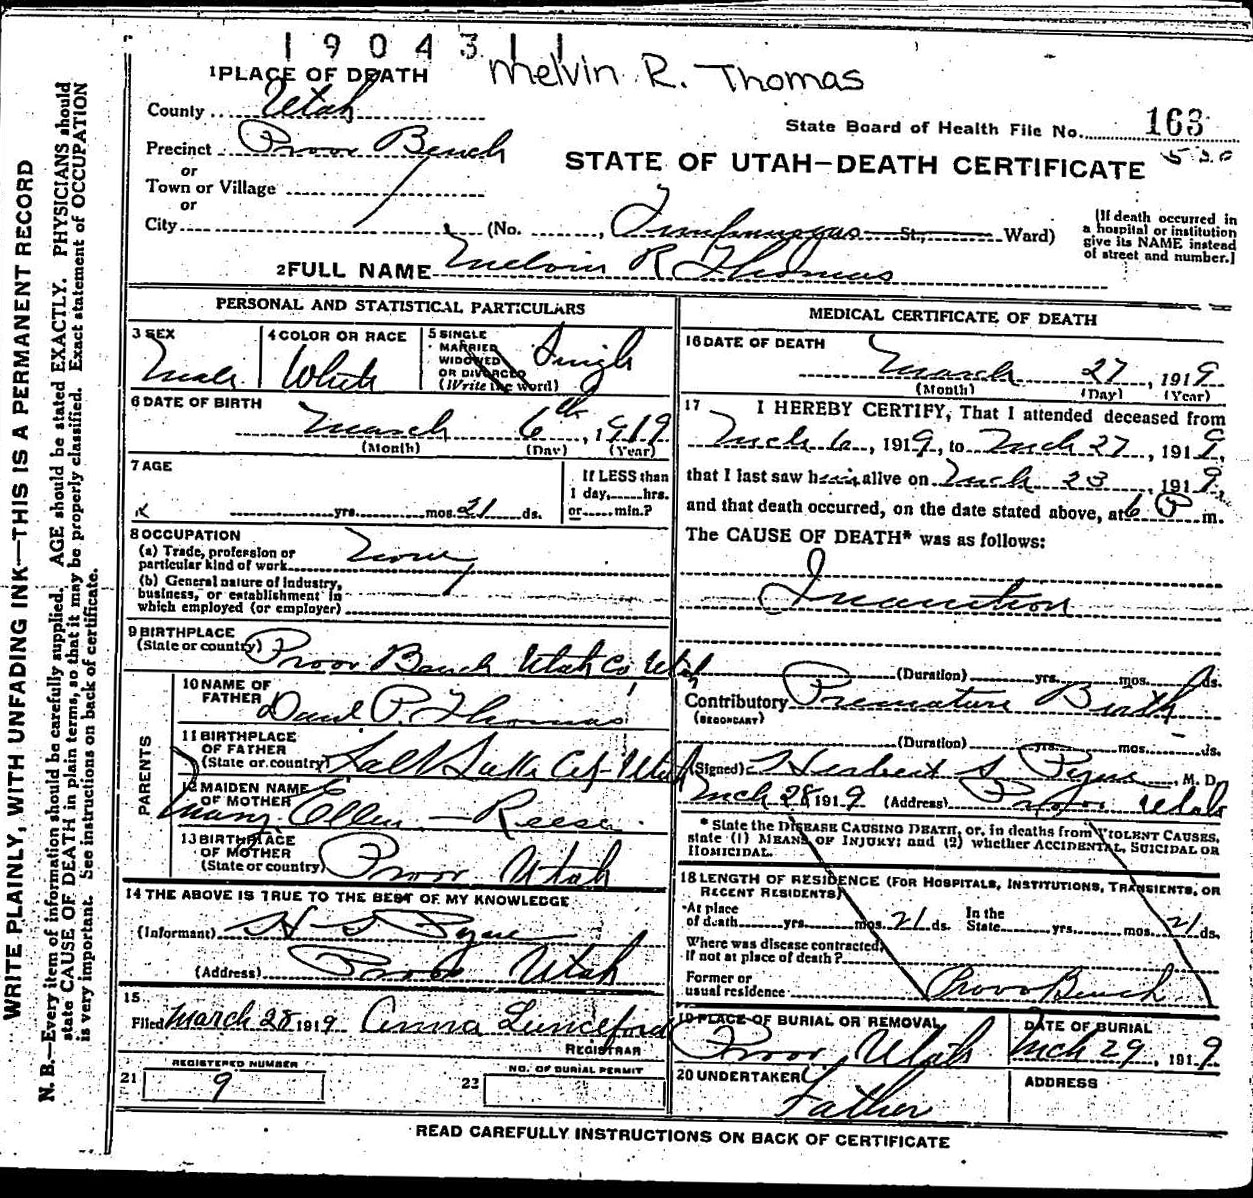 1904311
Melvin R. Thomas
1 PLACE OF DEATH
County Utah
State Board of Health File No. 163
Precinct Provo Bench
530
or
STATE OF UTAH—DEATH CERTIFICATE
Town or Village
or
City (No. , Timpanogas St., Ward)
[If death occurred in
a hospital or institution
give its NAME instead
of street and number.]
2 FULL NAME Melvin R Thomas
PERSONAL AND STATISTICAL PARTICULARS
3 SEX
Male
4 COLOR OR RACE
White
5 SINGLE
MARRIED
WIDOWED
OR DIVORCED
(Write the word)
Single
6 DATE OF BIRTH
March 6th, 1919
(Month) (Day) (Year)
7 AGE
yrs. mos. 21 ds.
If LESS than
1 day, hrs.
or min.?
8 OCCUPATION
(a) Trade, profession or
particular kind of work None
(b) General nature of industry,
business, or establishment in
which employed (or employer)
9 BIRTHPLACE
(State or country) Provo Bench Utah Co Utah
PARENTS
10 NAME OF
FATHER
Danl P. Thomas
11 BIRTHPLACE
OF FATHER
(State or country) Salt Lake City Utah
12 MAIDEN NAME
OF MOTHER
Mary Ellen Reese
13 BIRTHPLACE
OF MOTHER
(State or country) Provo Utah
14 THE ABOVE IS TRUE TO THE BEST OF MY KNOWLEDGE
(Informant) H S Pyne
(Address) Provo Utah
15
Filed March 28 1919 Anna Lunceford
REGISTRAR
REGISTERED NUMBER
21 9
NO. OF BURIAL PERMIT
22
MEDICAL CERTIFICATE OF DEATH
16 DATE OF DEATH
March 27, 1919
(Month) (Day) (Year)
17 I HEREBY CERTIFY, That I attended deceased from
Mch 6, 1919, to Mch 27, 1919,
that I last saw him alive on Mch 23 1919,
and that death occurred, on the date stated above, at 6 P m.
The CAUSE OF DEATH* was as follows:
Inanition
(Duration) yrs. mos. ds.
Contributory Premature Birth
(SECONDARY)
(Duration) yrs. mos. ds.
(Signed) Herbert S Pyne, M. D.
Mch 28 1919 (Address) Provo Utah
* State the DISEASE CAUSING DEATH, or, in deaths from VIOLENT CAUSES,
state (1) MEANS OF INJURY; and (2) whether ACCIDENTAL, SUICIDAL OR
HOMICIDAL.
18 LENGTH OF RESIDENCE (FOR HOSPITALS, INSTITUTIONS, TRANSIENTS, OR
RECENT RESIDENTS)
At place
of death yrs. mos. 21 ds.
In the
State yrs. mos. 21 ds.
Where was disease contracted,
if not at place of death?
Former or
usual residence Provo Bench
19 PLACE OF BURIAL OR REMOVAL
Provo, Utah
DATE OF BURIAL
Mch 29, 1919
20 UNDERTAKER
Father
ADDRESS
READ CAREFULLY INSTRUCTIONS ON BACK OF CERTIFICATE
WRITE PLAINLY, WITH UNFADING INK—THIS IS A PERMANENT RECORD
N. B.—Every item of information should be carefully supplied. AGE should be stated EXACTLY. PHYSICIANS should
state CAUSE OF DEATH in plain terms, so that it may be properly classified. Exact statement of OCCUPATION
is very important. See instructions on back of certificate.